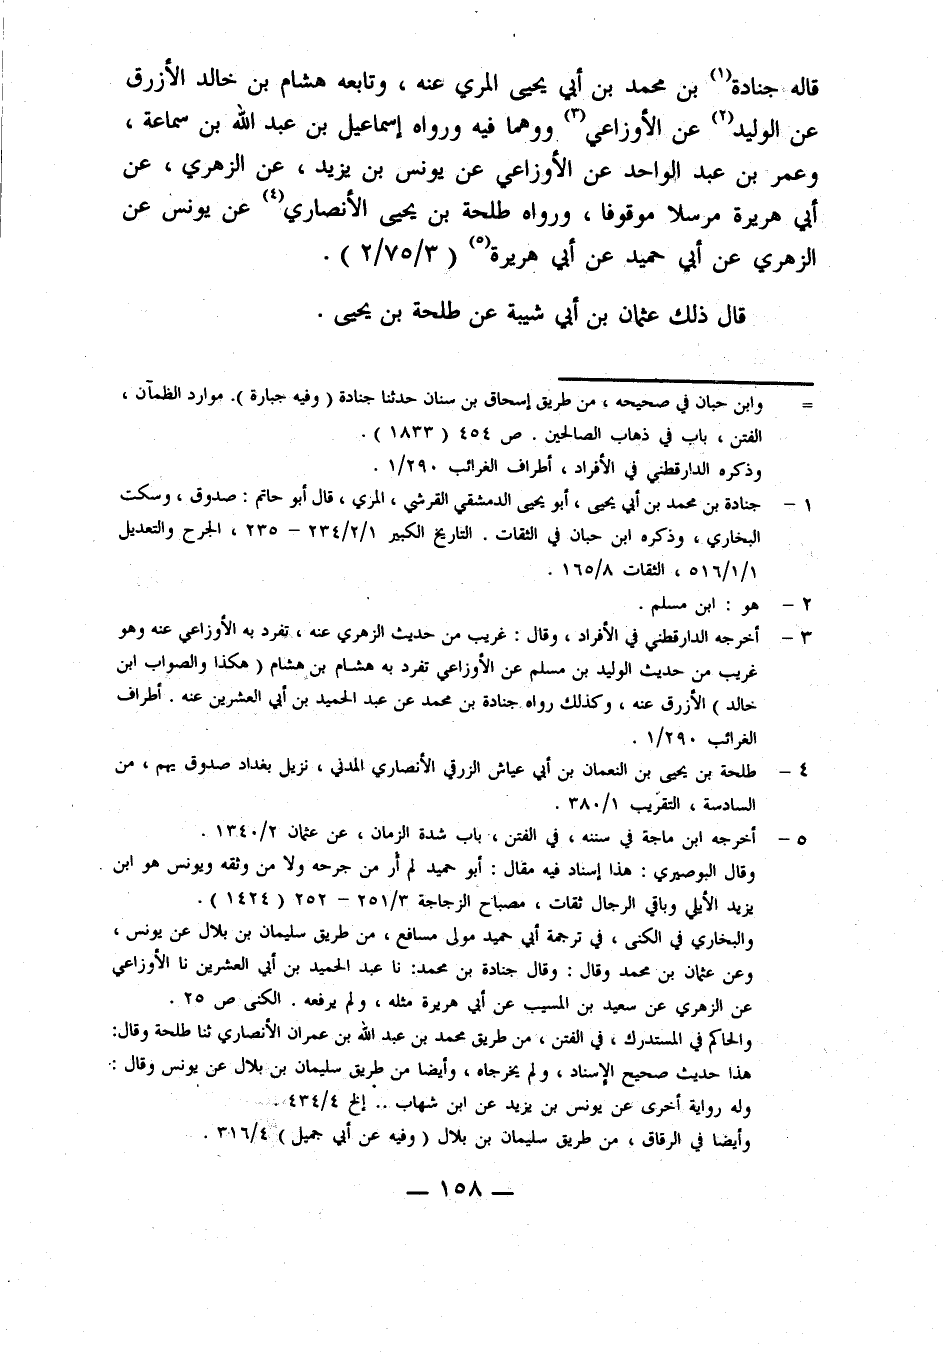 قاله جنادة(١) بن محمد بن أبي يحيى المري عنه ، وتابعه هشام بن خالد الأزرق
عن الوليد(٢) عن الأوزاعي(٣) ووهما فيه ورواه إسماعيل بن عبد الله بن سماعة ،
وعمر بن عبد الواحد عن الأوزاعي عن يونس بن يزيد ، عن الزهري ، عن
أبي هريرة مرسلا موقوفا ، ورواه طلحة بن يحيى الأنصاري(٤) عن يونس عن
الزهري عن أبي حميد عن أبي هريرة(٥) ( ٢/٧٥/٣ ) .
قال ذلك عثمان بن أبي شيبة عن طلحة بن يحيى .
= وابن حبان في صحيحه ، من طريق إسحاق بن سنان حدثنا جنادة ( وفيه جبارة ). موارد الظمآن ،
الفتن ، باب في ذهاب الصالحين . ص ٤٥٤ ( ١٨٣٣ ) .
وذكره الدارقطني في الأفراد ، أطراف الغرائب ١/٢٩٠ .
١ – جنادة بن محمد بن أبي يحيى ، أبو يحيى الدمشقي القرشي ، المري ، قال أبو حاتم : صدوق ، وسكت
البخاري ، وذكره ابن حبان في الثقات . التاريخ الكبير ٢٣٤/٢/١ – ٢٣٥ ، الجرح والتعديل
٥١٦/١/١ ، الثقات ١٦٥/٨ .
٢ – هو : ابن مسلم .
٣ – أخرجه الدارقطني في الأفراد ، وقال : غريب من حديث الزهري عنه ، تفرد به الأوزاعي عنه وهو
غريب من حديث الوليد بن مسلم عن الأوزاعي تفرد به هشام بن هشام ( هكذا والصواب ابن
خالد ) الأزرق عنه ، وكذلك رواه جنادة بن محمد عن عبد الحميد بن أبي العشرين عنه . أطراف
الغرائب ١/٢٩٠ .
٤ – طلحة بن يحيى بن النعمان بن أبي عياش الزرقي الأنصاري المدني ، نزيل بغداد صدوق يهم ، من
السادسة ، التقريب ٣٨٠/١ .
٥ – أخرجه ابن ماجة في سننه ، في الفتن ، باب شدة الزمان ، عن عثمان ١٣٤٠/٢ .
وقال البوصيري : هذا إسناد فيه مقال : أبو حميد لم أر من جرحه ولا من وثقه ويونس هو ابن
يزيد الأيلي وباقي الرجال ثقات ، مصباح الزجاجة ٢٥١/٣ – ٢٥٢ ( ١٤٢٤ ) .
والبخاري في الكنى ، في ترجمة أبي حميد مولى مسافع ، من طريق سليمان بن بلال عن يونس ،
وعن عثمان بن محمد وقال : وقال جنادة بن محمد: نا عبد الحميد بن أبي العشرين نا الأوزاعي
عن الزهري عن سعيد بن المسيب عن أبي هريرة مثله ، ولم يرفعه . الكنى ص ٢٥ .
والحاكم في المستدرك ، في الفتن ، من طريق محمد بن عبد الله بن عمران الأنصاري ثنا طلحة وقال:
هذا حديث صحيح الإسناد ، ولم يخرجاه ، وأيضا من طريق سليمان بن بلال عن يونس وقال :
وله رواية أخرى عن يونس بن يزيد عن ابن شهاب .. إلخ ٤٣٤/٤ .
وأيضا في الرقاق ، من طريق سليمان بن بلال ( وفيه عن أبي جميل ) ٣١٦/٤ .
— ١٥٨ —